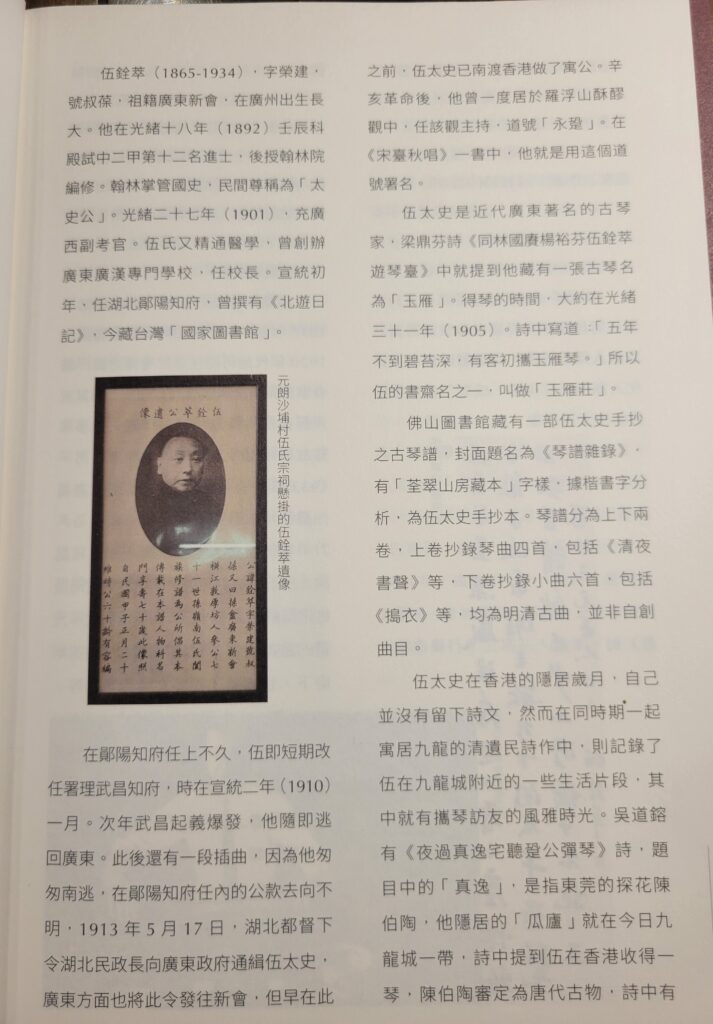 伍銓萃（1865-1934），字榮建，
號叔葆，祖籍廣東新會，在廣州出生長
大。他在光緒十八年（1892）壬辰科
殿試中二甲第十二名進士，後授翰林院
編修。翰林掌管國史，民間尊稱為「太
史公」。光緒二十七年（1901），充廣
西副考官。伍氏又精通醫學，曾創辦
廣東廣漢專門學校，任校長。宣統初
年，任湖北鄖陽知府，曾撰有《北遊日
記》，今藏台灣「國家圖書館」。
伍銓萃公遺像
公諱銓萃字榮建號叔
葆又曰葆盦廣東新會
橫江敦厚坊人參公七
十一世孫嶺南伍氏闔
族修譜為公所倡其本
傳載在本譜人物科名
門享壽七十歲此像照
自民國甲子正月二十
維時公六十齡有容編
元朗沙埔村伍氏宗祠懸掛的伍銓萃遺像
在鄖陽知府任上不久，伍即短期改
任署理武昌知府，時在宣統二年（1910）
一月。次年武昌起義爆發，他隨即逃
回廣東。此後還有一段插曲，因為他匆
匆南逃，在鄖陽知府任內的公款去向不
明，1913 年 5 月 17 日，湖北都督下
令湖北民政長向廣東政府通緝伍太史，
廣東方面也將此令發往新會，但早在此
之前，伍太史已南渡香港做了寓公。辛
亥革命後，他曾一度居於羅浮山酥醪
觀中，任該觀主持，道號「永跫」。在
《宋臺秋唱》一書中，他就是用這個道
號署名。
伍太史是近代廣東著名的古琴
家，梁鼎芬詩《同林國賡楊裕芬伍銓萃
遊琴臺》中就提到他藏有一張古琴名
為「玉雁」。得琴的時間，大約在光緒
三十一年（1905）。詩中寫道：「五年
不到碧苔深，有客初攜玉雁琴。」所以
伍的書齋名之一，叫做「玉雁莊」。
佛山圖書館藏有一部伍太史手抄
之古琴譜，封面題名為《琴譜雜錄》，
有「荃翠山房藏本」字樣，據楷書字分
析，為伍太史手抄本。琴譜分為上下兩
卷，上卷抄錄琴曲四首，包括《清夜
書聲》等，下卷抄錄小曲六首，包括
《搗衣》等，均為明清古曲，並非自創
曲目。
伍太史在香港的隱居歲月，自己
並沒有留下詩文，然而在同時期一起
寓居九龍的清遺民詩作中，則記錄了
伍在九龍城附近的一些生活片段，其
中就有攜琴訪友的風雅時光。吳道鎔
有《夜過真逸宅聽跫公彈琴》詩，題
目中的「真逸」，是指東莞的探花陳
伯陶，他隱居的「瓜廬」就在今日九
龍城一帶，詩中提到伍在香港收得一
琴，陳伯陶審定為唐代古物，詩中有